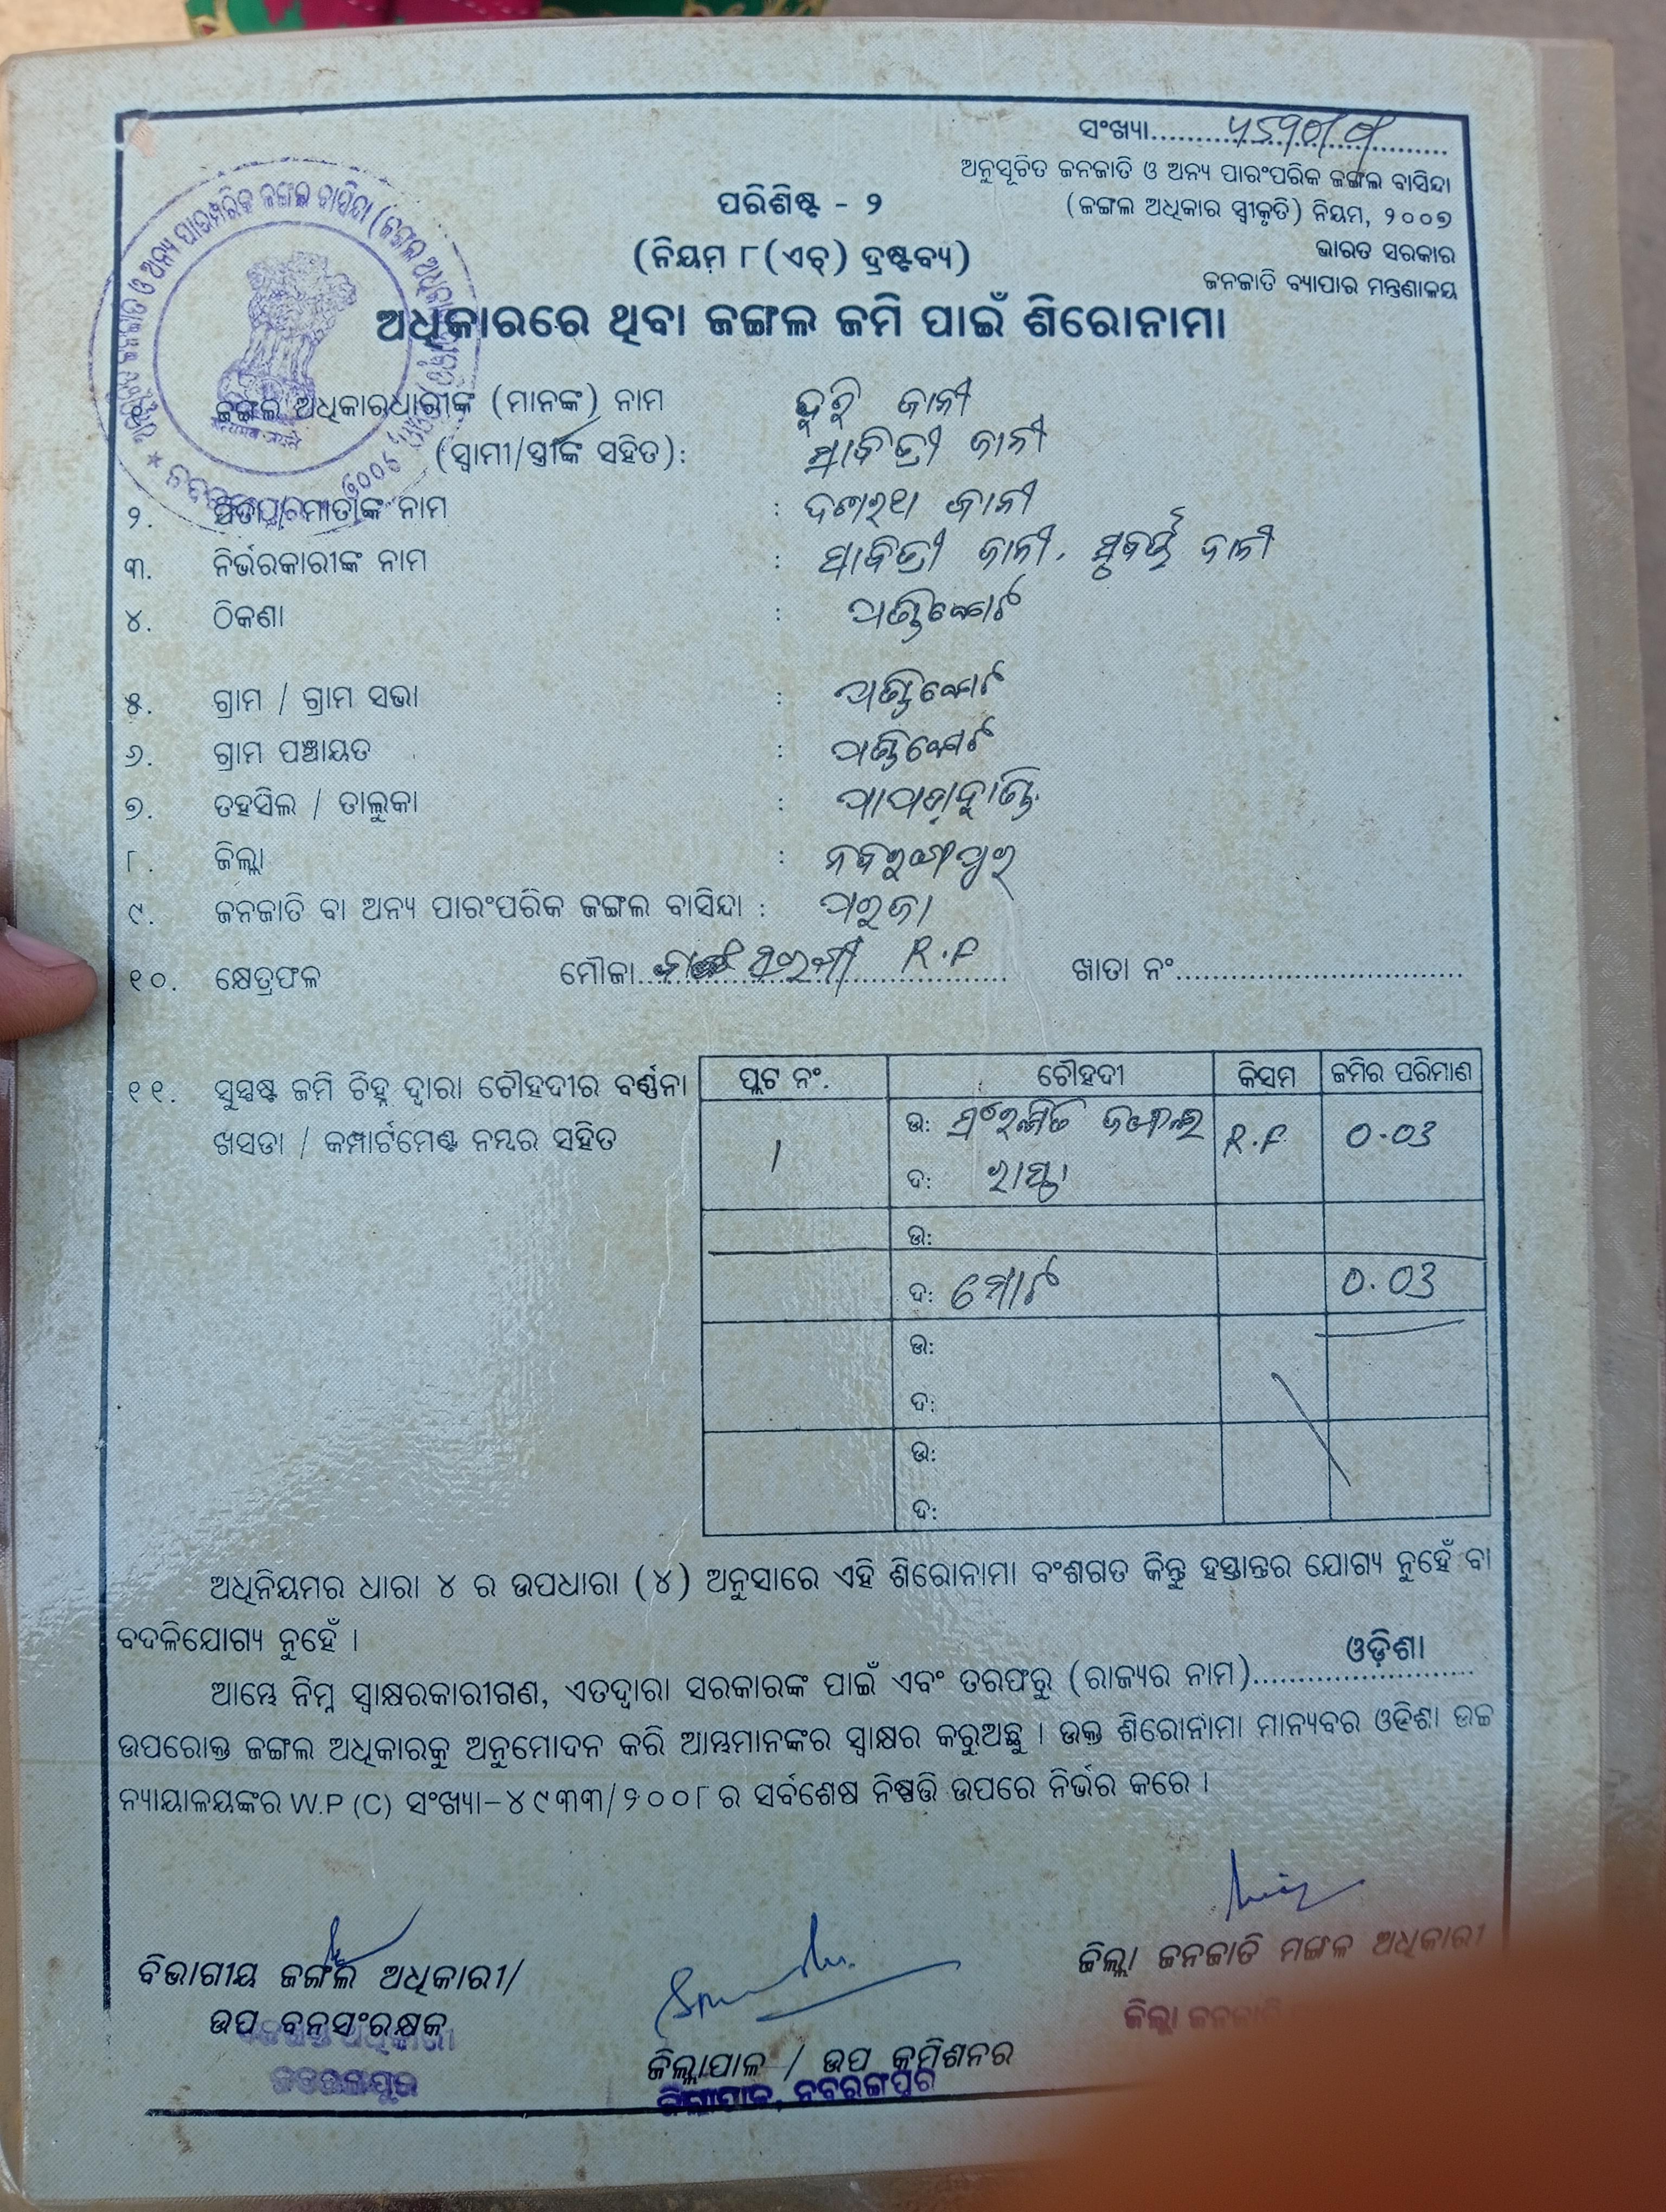 ସଂଖ୍ୟା
ଅନୁସୂଚିତ ଜନଜାତି ଓ ଅନ୍ୟ ପାରଂପରିକ ଜଙ୍ଗଲ ବାସିନ୍ଦା
(ଜଙ୍ଗଲ ଅଧିକାର ସ୍ୱୀକୃତି) ନିୟମ, ୨୦୦୭
ଭାରତ ସରକାର
ଜନଜାତି ବ୍ୟାପାର ମନ୍ତ୍ରଣାଳୟ
ପରିଶିଷ୍ଟ - ୨
(ନିୟମ ୮(ଏଚ୍) ଦ୍ରଷ୍ଟବ୍ୟ)
ଅଧିକାରରେ ଥିବା ଜଙ୍ଗଲ ଜମି ପାଇଁ ଶିରୋନାମା
ଜଙ୍ଗଲ ଅଧିକାରଧାରୀଙ୍କ (ମାନଙ୍କ) ନାମ ଜାନୀ
(ସ୍ୱାମୀ/ସ୍ତ୍ରୀଙ୍କ ସହିତ): ସାବିତ୍ରୀ ଜାନୀ
୨. ପିତା/ମାତାଙ୍କ ନାମ : ଦଶରଥ ଜାନୀ
୩. ନିର୍ଭରକାରୀଙ୍କ ନାମ : ସାବିତ୍ରୀ ଜାନୀ, ଜାନୀ
୪. ଠିକଣା :
୫. ଗ୍ରାମ / ଗ୍ରାମ ସଭା :
୬. ଗ୍ରାମ ପଞ୍ଚାୟତ :
୭. ତହସିଲ / ତାଲୁକା : ପାପଡ଼ାହାଣ୍ଡି
୮. ଜିଲ୍ଲା : ନବରଙ୍ଗପୁର
୯. ଜନଜାତି ବା ଅନ୍ୟ ପାରଂପରିକ ଜଙ୍ଗଲ ବାସିନ୍ଦା : ପରଜା
୧୦. କ୍ଷେତ୍ରଫଳ ମୌଜା R.F ଖାତା ନଂ
୧୧. ସୁସ୍ପଷ୍ଟ ଜମି ଚିହ୍ନ ଦ୍ୱାରା ଚୌହଦୀର ବର୍ଣ୍ଣନା
ଖସଡା / କମ୍ପାର୍ଟମେଣ୍ଟ ନମ୍ବର ସହିତ
ପ୍ଲଟ ନଂ. ଚୌହଦୀ କିସମ ଜମିର ପରିମାଣ
1 ଉ: ସଂରକ୍ଷିତ ଜଙ୍ଗଲ R.F. 0.03
ଦ: ରାସ୍ତା
ଉ:
ଦ: ମୋଟ 0.03
ଉ:
ଦ:
ଉ:
ଦ:
ଅଧିନିୟମର ଧାରା ୪ ର ଉପଧାରା (୪) ଅନୁସାରେ ଏହି ଶିରୋନାମା ବଂଶଗତ କିନ୍ତୁ ହସ୍ତାନ୍ତର ଯୋଗ୍ୟ ନୁହେଁ ବା
ବଦଳିଯୋଗ୍ୟ ନୁହେଁ ।
ଆମ୍ଭେ ନିମ୍ନ ସ୍ୱାକ୍ଷରକାରୀଗଣ, ଏତଦ୍ୱାରା ସରକାରଙ୍କ ପାଇଁ ଏବଂ ତରଫରୁ (ରାଜ୍ୟର ନାମ) ଓଡ଼ିଶା
ଉପରୋକ୍ତ ଜଙ୍ଗଲ ଅଧିକାରକୁ ଅନୁମୋଦନ କରି ଆମ୍ଭମାନଙ୍କର ସ୍ୱାକ୍ଷର କରୁଅଛୁ । ଉକ୍ତ ଶିରୋନାମା ମାନ୍ୟବର ଓଡିଶା ଉଚ୍ଚ
ନ୍ୟାୟାଳୟଙ୍କର W.P (C) ସଂଖ୍ୟା-୪୯୩୩/୨୦୦୮ ର ସର୍ବଶେଷ ନିଷ୍ପତ୍ତି ଉପରେ ନିର୍ଭର କରେ ।
ବିଭାଗୀୟ ଜଙ୍ଗଲ ଅଧିକାରୀ/
ଉପ ବନସଂରକ୍ଷକ
ଜିଲ୍ଲାପାଳ / ଉପ କମିଶନର
ଜିଲ୍ଲାପାଳ, ନବରଙ୍ଗପୁର
ଜିଲ୍ଲା ଜନଜାତି ମଙ୍ଗଳ ଅଧିକାରୀ
ଜିଲ୍ଲା